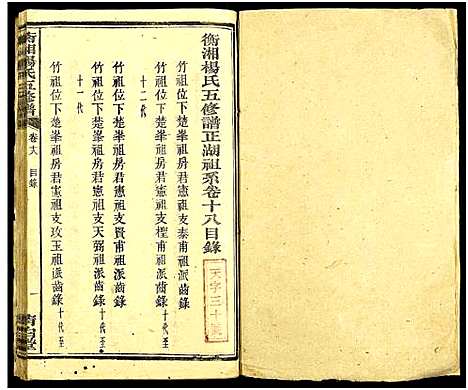 衡湘楊氏五修譜正湖祖系卷十八目錄
竹祖位下楚峯祖房君憲祖支泰甫祖派齒錄
竹祖位下楚峯祖房君憲祖支樫甫祖派齒錄十代至
十二代
竹祖位下楚峯祖房君憲祖支賢甫祖派齒錄
竹祖位下楚峯祖房君憲祖支天弼祖派齒錄十代至
十一代
竹祖位下楚峯祖房君憲祖支玫玉祖派齒錄十代至
衡湘楊氏五修譜
卷十八
目錄
一
天字三十號